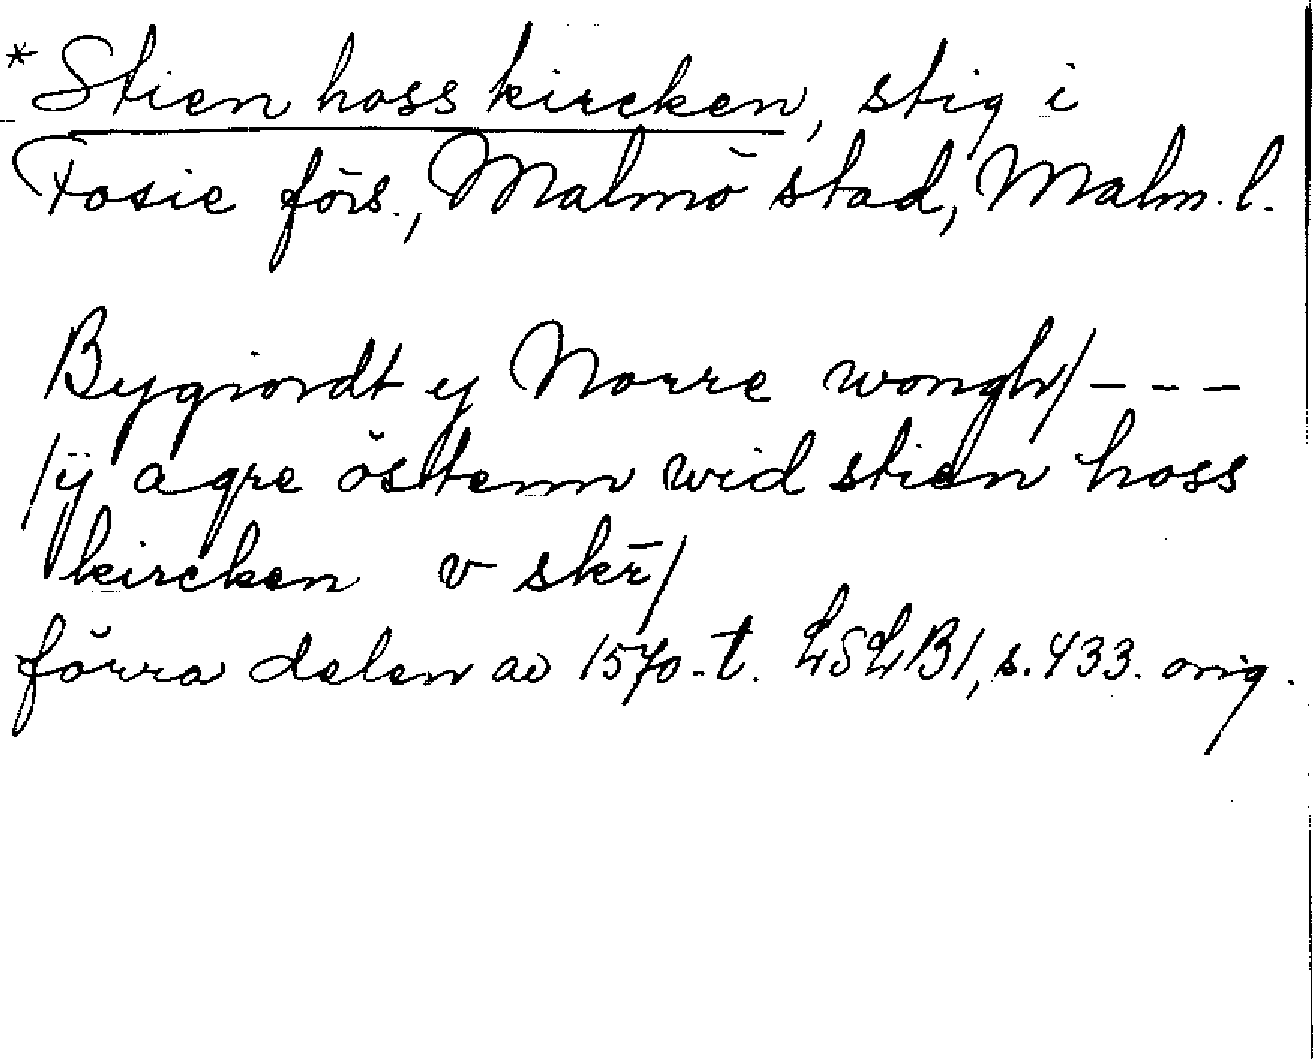 *Stien hoss kircken, stig i
Fosie förs., Malmö stad, Malm. l.
Bygiordt y Norre wongh/ - - -
/ij agre östenn wid stien hoss
kircken v skr̄/
förra delen av 1570-t. LSLB1, s. 433. orig.